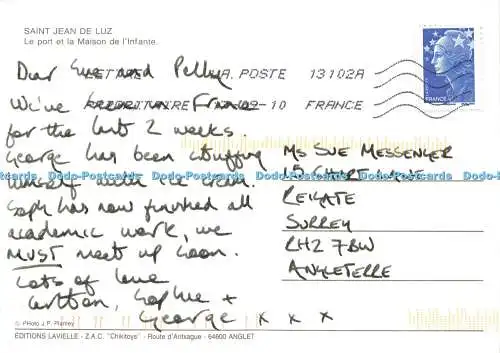 SAINT JEAN DE LUZ
Le port et la Maison de l'Infante.
LA POSTE 13102A
09-10 FRANCE
FRANCE
Dear Sue and Polly
We've been in France
for the last 2 weeks.
George has been stuffing
himself with ice cream.
Soph has now finished all
academic work, we
MUST meet up soon.
Lots of love
Sophie +
George x x x
Ms SUE MESSENGER
REIGATE
SURREY
RH2 7BW
ANGLETERRE
Dodo-Postcards Dodo-Postcards Dodo-Postcards Dodo-Postcards Dodo-Postcards Dodo-Postcards
© Photo J.P. Plantey
ÉDITIONS LAVIELLE - Z.A.C. "Chikitoys" - Route d'Antxague - 64600 ANGLET